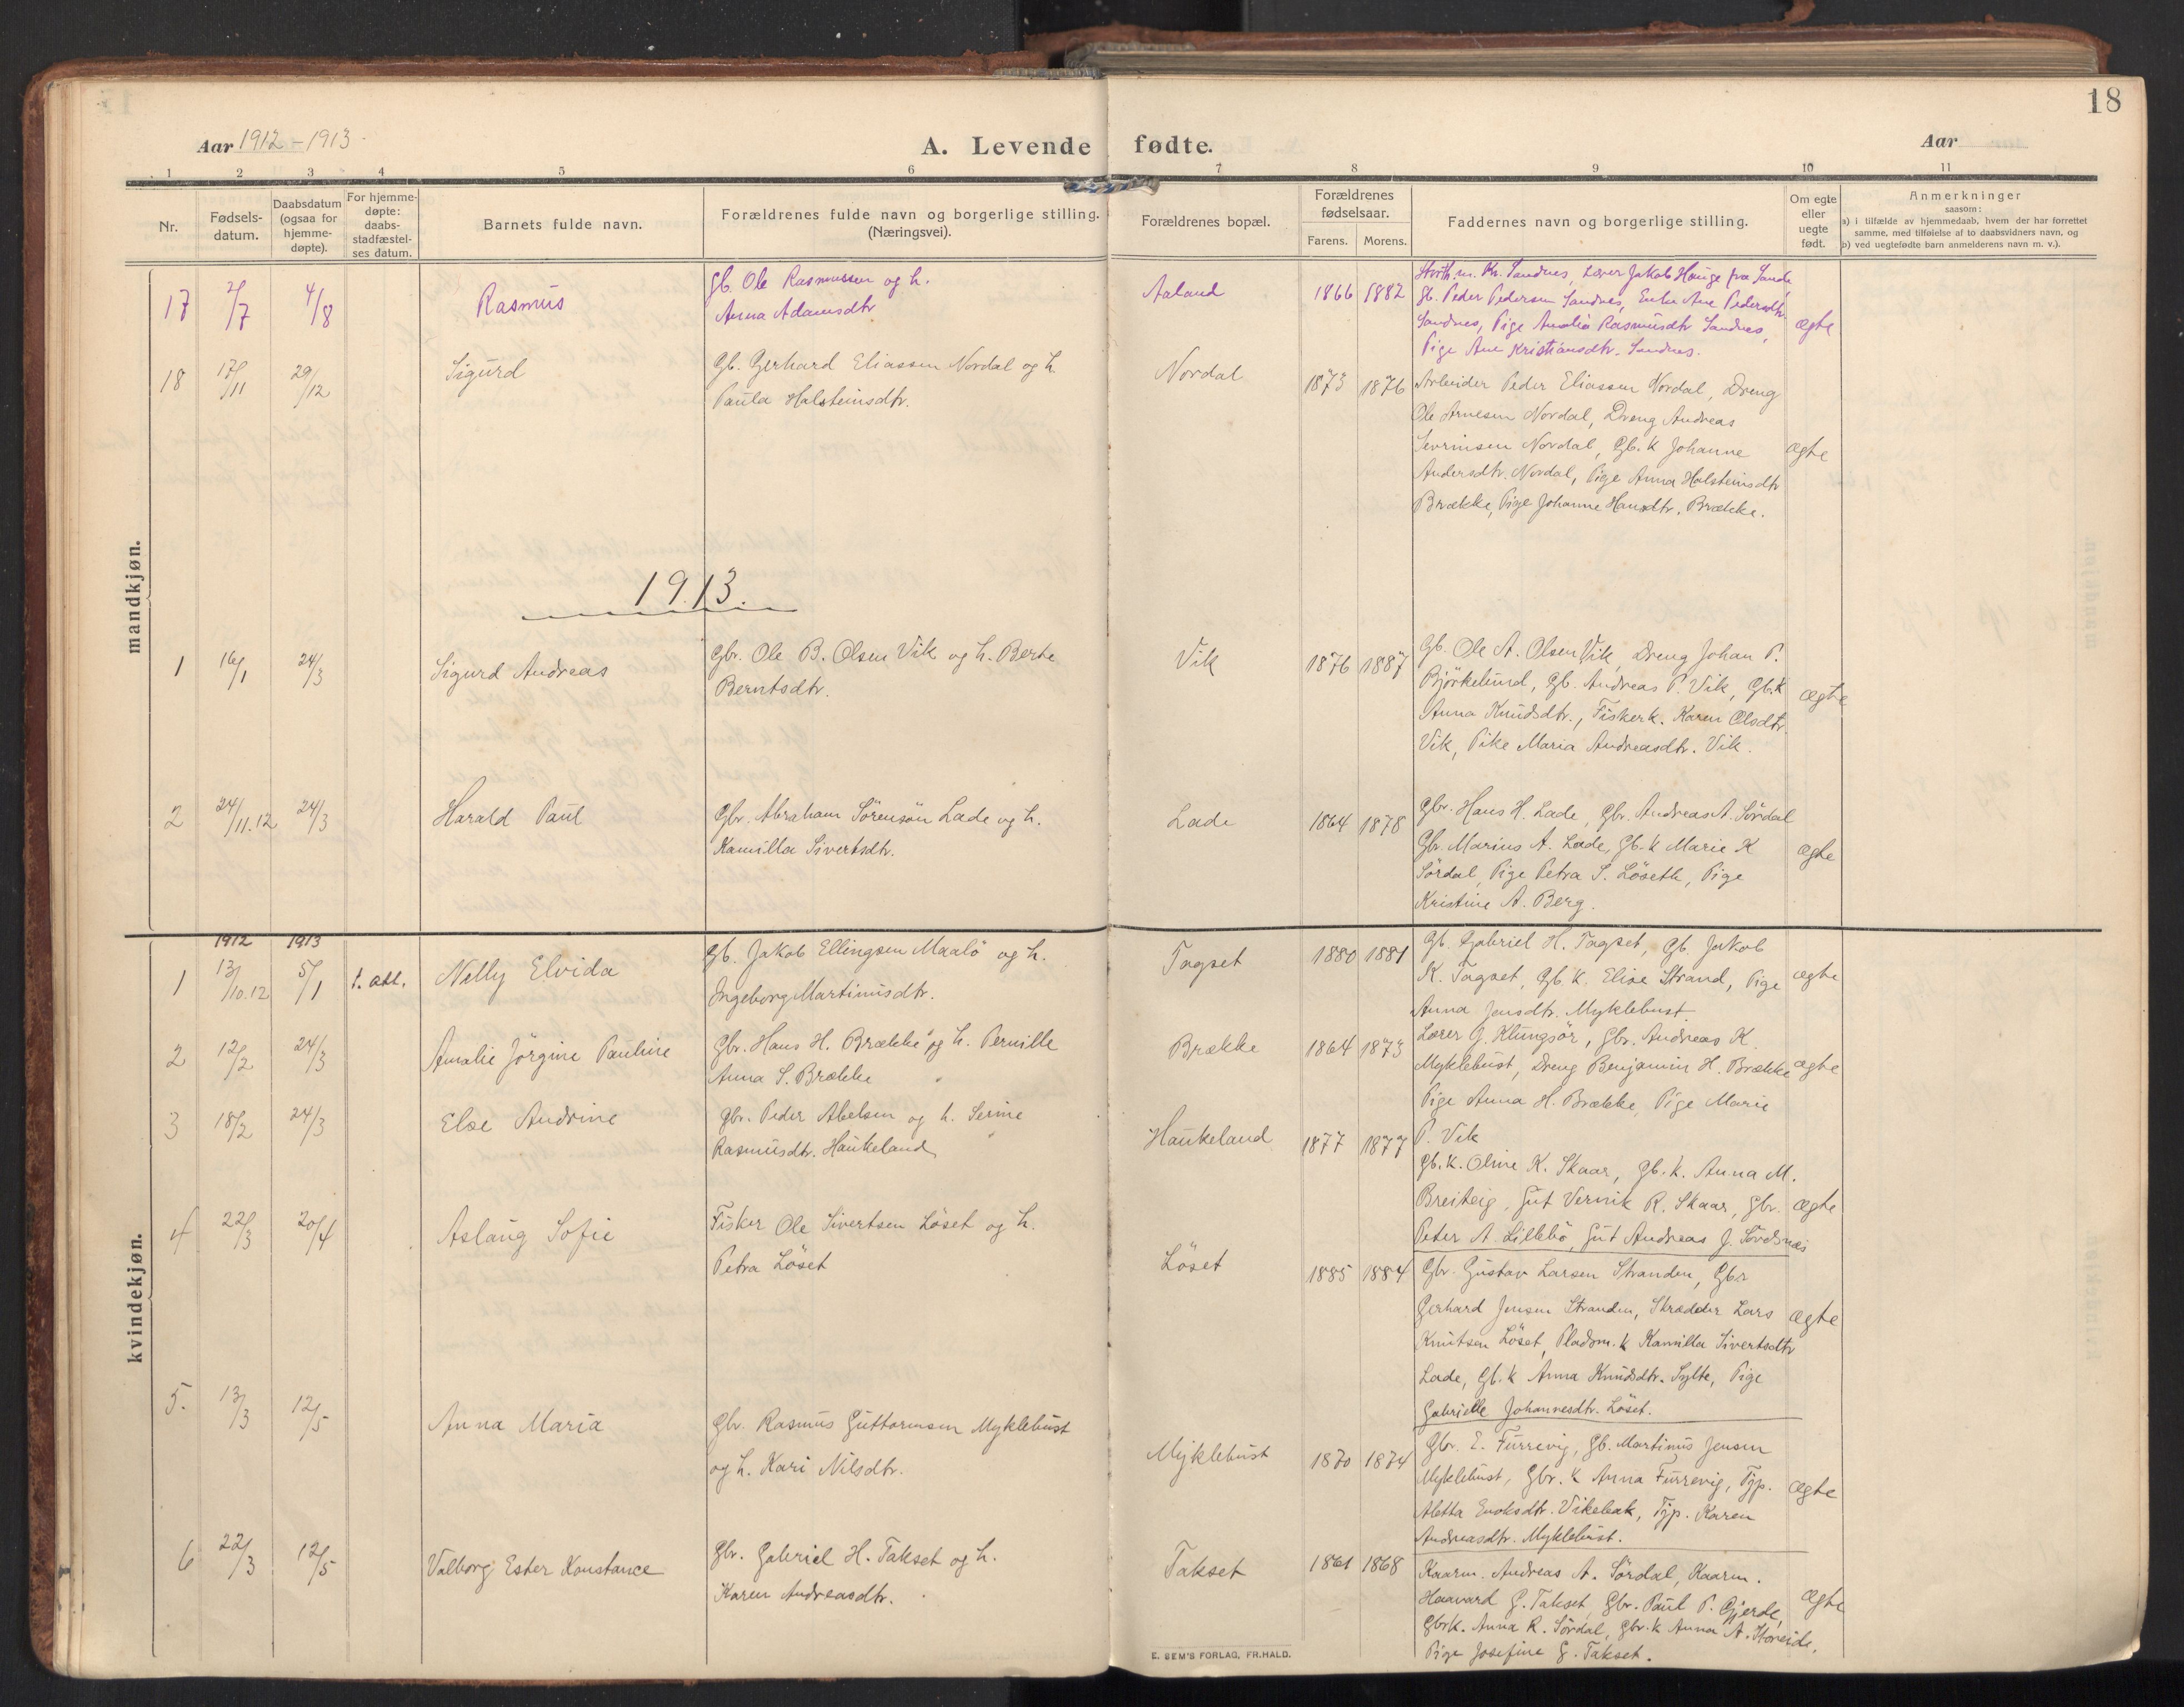 18
Aar 1912 – 1913
A. Levende fødte.
Aar
1 2 3 4 5 6 7 8 9 10 11
Nr.
Fødsels-
datum.
Daabsdatum
(ogsaa for
hjemme-
døpte).
For hjemme-
døpte:
daabs-
stadfæstel-
ses datum.
Barnets fulde navn.
Forældrenes fulde navn og borgerlige stilling.
(Næringsvei).
Forældrenes bopæl.
Forældrenes
fødselsaar.
Farens. Morens.
Faddernes navn og borgerlige stilling.
Om egte
eller
uegte
født.
Anmerkninger
saasom:
a) i tilfælde av hjemmedaab, hvem der har forrettet
samme, med tilføielse af to daabsvidners navn, og
b) ved uegtefødte barn anmelderens navn m. v.).
mandkjøn.
17 2/7 4/8 Rasmus
Gb. Ole Rasmussen og h.
Anna Adamsdtr
Aaland 1866 1882
Kr. Sandnes, Lærer Jakob Hauge fra Sande,
Gb. Peder Pedersen Sandnes, Enke Ane Pedersdtr.
Sandnes, Pige Amalia Rasmusdtr Sandnes,
Pige Ane Kristiansdtr. Sandnes.
ægte
18 17/11 29/12 Sigurd
Gb. Gerhard Eliassen Nordal og h
Paula Holsteinsdtr.
Nordal 1873 1876
Arbeider Peder Eliassen Nordal, Dreng
Ole Arnesen Nordal, Dreng Andreas
Sevrinsen Nordal, Gb. k Johanne
Andersdtr. Nordal, Pige Anna Holsteinsdtr
Brække, Pige Johanne Hansdtr. Brække.
ægte
1913.
1 16/1 24/3 Sigurd Andreas
Gbr. Ole B. Olsen Vik og h. Berte
Berntsdtr.
Vik 1876 1887
Gb. Ole A. Olsen Vik, Dreng Johan P.
Björkelund, Gb. Andreas P. Vik, Gb.k
Anna Knudsdtr., Fiskerk. Karen Olsdtr.
Vik, Pike Maria Andreasdtr. Vik.
ægte
2 24/11.12 24/3 Harald Paul
Gbr. Abraham Sörensön Lade og h.
Kamilla Sivertsdtr.
Lade 1864 1878
Gbr. Hans H. Lade, Gbr. Andreas A. Sördal
Gbr. Marius A. Lade, Gb. k Marie K
Sördal, Pige Petra S. Löseth, Pige
Kristine A. Berg.
ægte
kvindekjøn.
1912 1913
1 13/10.12 5/1 Nelly Elvida
Gb. Jakob Ellingsen Maalö og h.
Ingeborg Martinusdtr.
Tagset 1880 1881
Gb. Gabriel H. Tagset, Gb. Jakob
K. Tagset, Gb. k. Elise Strand, Pige
Anna Jensdtr. Myklebust.
ægte
2 12/2 24/3 Amalie Jörgine Pauline
Gbr. Hans H. Brække og h. Pernille
Anna S. Brække
Brække 1864 1873
Lærer J. Klungsör, Gbr. Andreas K.
Myklebust, Dreng Benjamin H. Brække
Pige Anna H. Brække, Pige Marie
P. Vik
ægte
3 18/2 24/3 Else Andrine
Gbr. Peder Abelsen og h. Serine
Rasmusdtr. Haukeland
Haukeland 1877 1877
Gb. k. Oline K. Skaar, Gb. k. Anna M.
Breiteig, Gut Vernik R. Skaar, Gbr.
Peter A. Lillebö, Gut Andreas J.
ægte
4 22/3 20/4 Aslaug Sofie
Fisker Ole Sivertsen Löset og h.
Petra Löset
Löset 1885 1884
Gbr. Gustav Larsen Stranden, Gbr
Gerhard Jensen Stranden, Skrædder Lars
Knutsen Löset, Pladsm. k Kamilla Sivertsdtr
Lade, Gb. k Anna Knudsdtr. Sylte, Pige
Gabrielle Johannesdtr. Löset.
ægte
5. 13/3 12/5 Anna Maria
Gbr. Rasmus Guttormsen Myklebust
og h. Kari Nilsdtr.
Myklebust 1870 1874
Gbr. E. Furrevig, Gb. Martinus Jensen
Myklebust, Gbr. k Anna Furrevig, Tjp.
Aletta Enoksdtr. Vikebak, Tjp. Karen
Andreasdtr. Myklebust.
ægte
6 22/3 12/5 Valborg Ester Konstance
Gbr. Gabriel H. Takset og h.
Karen Andreasdtr.
Takset 1861 1868
Kaarm. Andreas A. Sördal, Kaarm.
Haavard G. Takset, Gbr. Paul P. Gjerde,
Gbrk. Anna R. Sördal, Gbr. k Anna A. Storeide,
Pige Josefine G. Takset.
ægte
E. SEM'S FORLAG, FR.HALD.